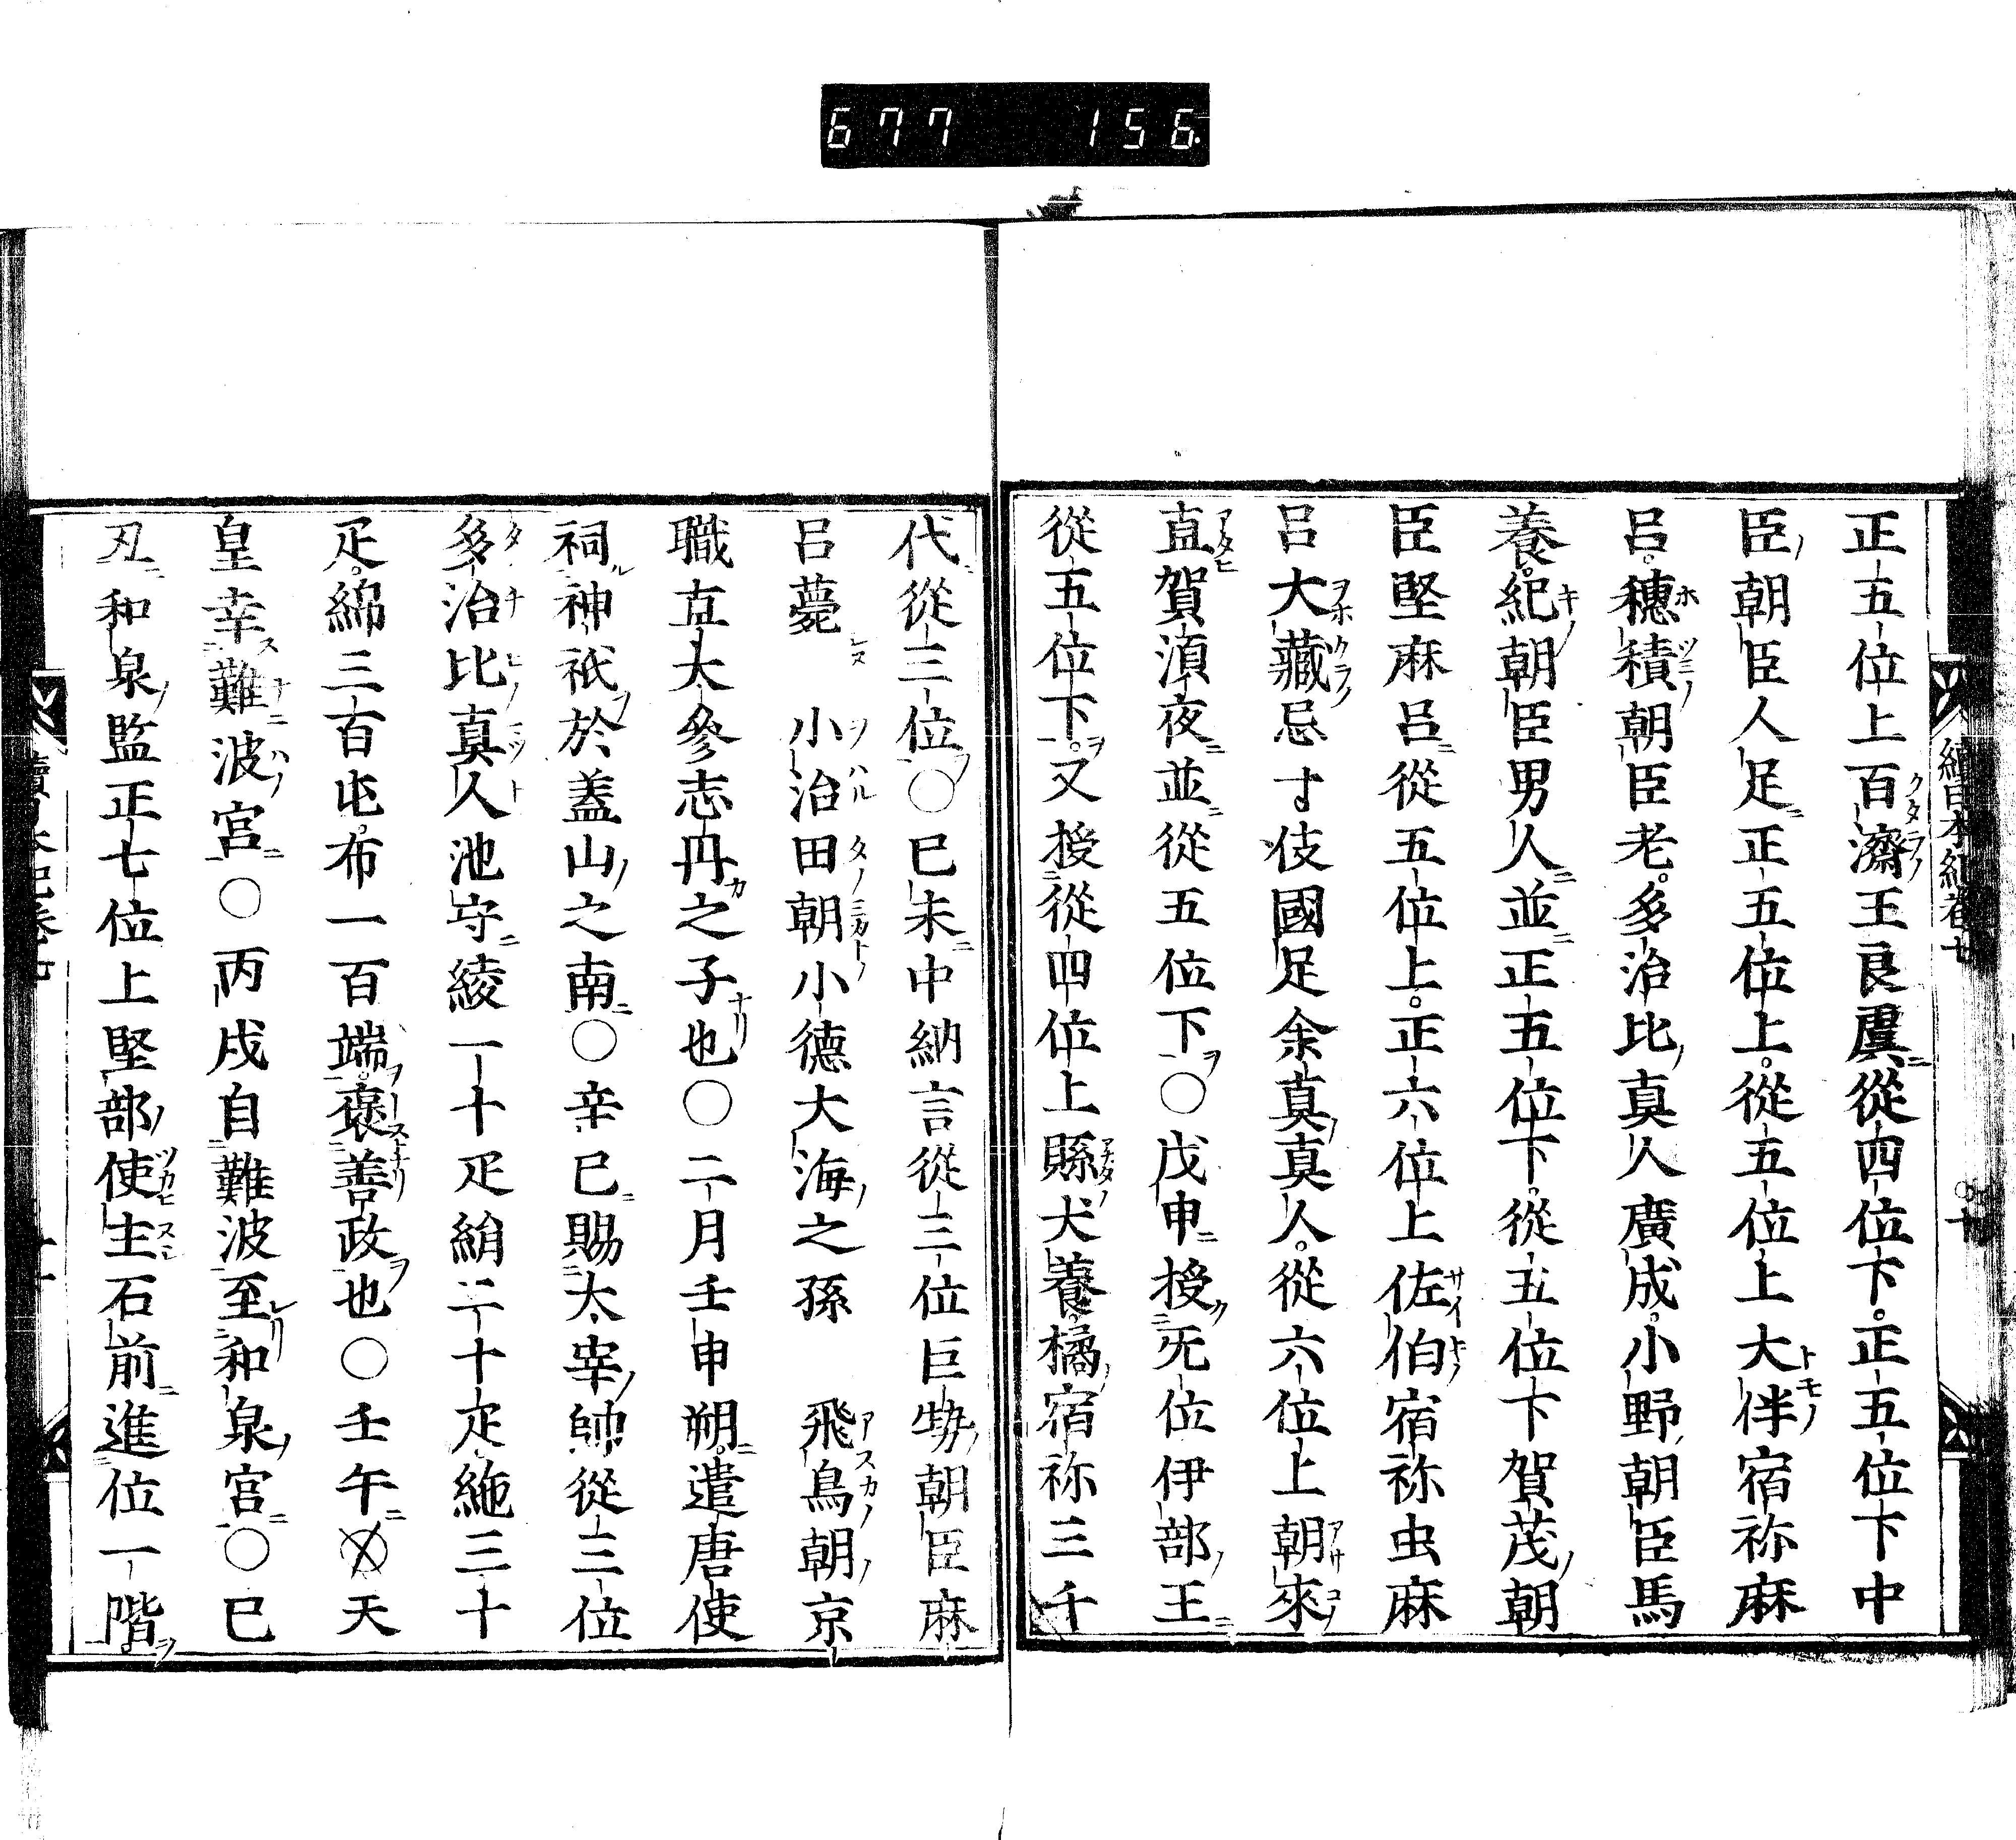 677 156
續日本紀卷七
正五位上百濟王良虞從四位下正五位下中
臣朝臣人足正五位上從五位上大伴宿祢麻
呂穗積朝臣老多治比真人廣成小野朝臣馬
養紀朝臣男人並正五位下從五位下賀茂朝
臣堅麻呂從五位上正六位上佐伯宿祢虫麻
呂大藏忌寸伎國足余真真人從六位上朝來
直賀湏夜並從五位下○戊申授无位伊部王
從五位下又授從四位上縣犬養橘宿祢三千
代從三位○巳未中納言從三位巨勢朝臣麻
呂薨 小治田朝小德大海之孫 飛鳥朝京
職直大參志丹之子也○二月壬申朔遣唐使
祠神祇於盖山之南○辛巳賜太宰帥從三位
多治比真人池守綾一十疋絹二十疋絁三十
疋綿三百屯布一百端褒善政也○壬午天
皇幸難波宮○丙戌自難波至和泉宮○巳
丑和泉監正七位上堅部使主石前進位一階